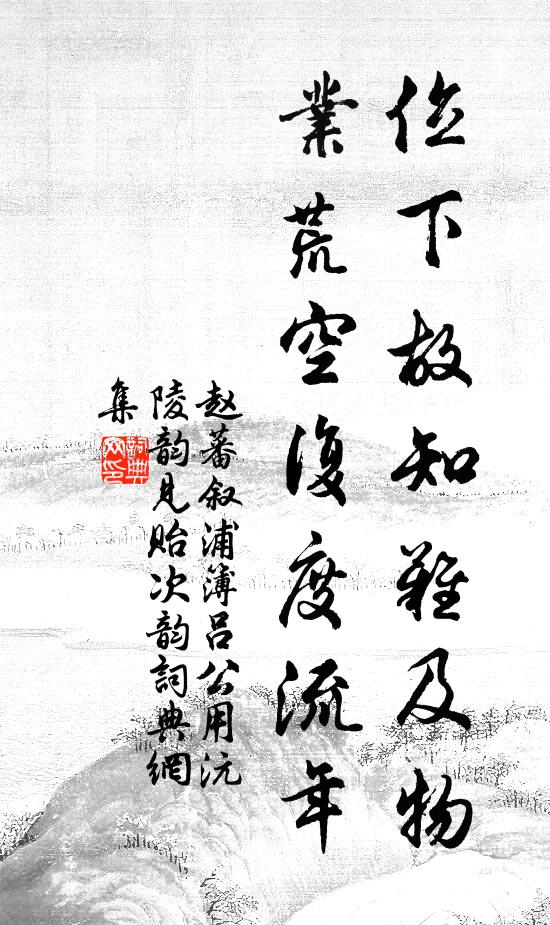 位下故知難及物
業荒空復度流年
赵蕃叙浦簿吕公用沅
陵韵見贻次韵詞典網
集